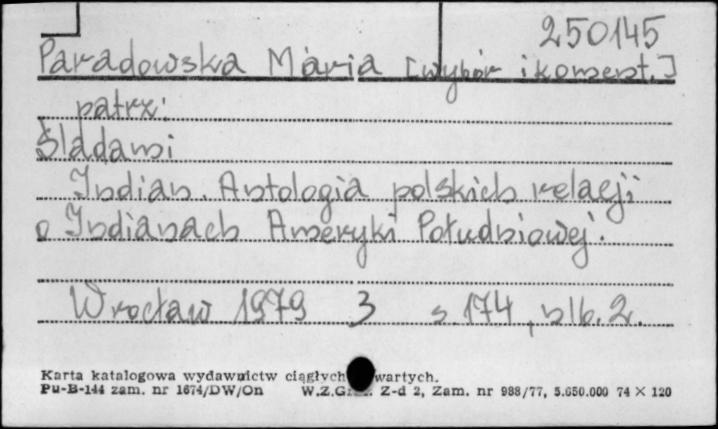 250145
Paradowska Maria [wybór i koment.]
patrz:
Śladami
Indian. Antologia polskich relacji
o Indianach Ameryki Południowej.
Wrocław 1979 3 s. 174, nlb. 2.
Karta katalogowa wydawnictw ciągłych wartych.
Pu-B-144 zam. nr 1674/DW/On W.Z.G. Z-d 2, Zam. nr 988/77, 5.650.000 74 × 120